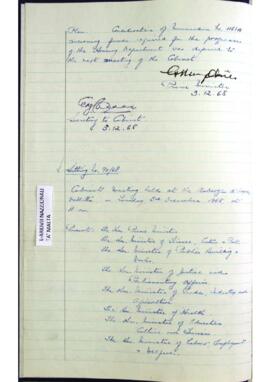 The Consideration of Memorandum No. 1181A
concerning funds required for the programme
of the Housing Department was deferred to
the next meeting of the Cabinet.
Prime Minister
3.12.68
Secretary to Cabinet
3.12.68
Sitting No. 70/68
Cabinet meeting held at the Auberge
Valletta on Tuesday 3rd December 1968, at
Present: The Hon. Prime Minister
The Hon. Minister of Finance, Customs & Port
The Hon. Minister of Public Building &
Works.
The Hon. Minister of Justice and
Parliamentary Affairs
The Hon. Minister of Trade, Industry and
Agriculture
The Hon. Minister of Health
The Hon. Minister of Education
Culture and Tourism
The Hon. Minister of Labour Employment
& Welfare.
L-ARKIVJI NAZZJONALI
TA' MALTA